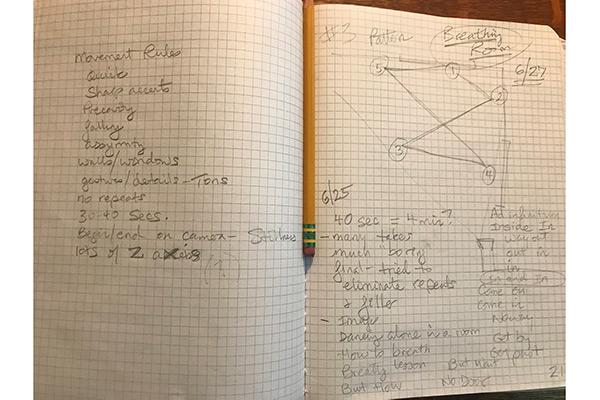 Movement Rules
Quick
Sharp accents
Precarity
falling
assymmetry
walls/windows
gesture/details - Tons
no repeats
30-40 secs.
Begin/end on camera - Stillness
lots of Z axis
#3 Pattern Breathing Room
6/27
5 1
2
3
4
6/25
40 sec = 4 min?
- many takes
much boring
final - tried to
eliminate repeats
& filler
- Image
Dancing alone in a room
How to breath
Breathing lesson
But How
Ad infinitum
Inside In
way out
out in
in
In and In
Come on
come in
No way
Get by
Get past
But wait
No Door
21